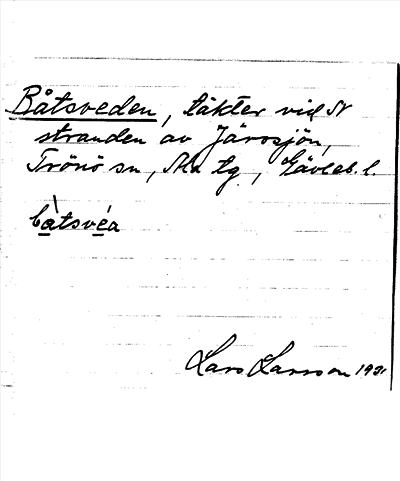 Båtsveden, täkter vid N
stranden av Järvsjön,
Trönö sn, Ala tg, Gävleb. l.
bàtsvéa
Lars Larsson 1931